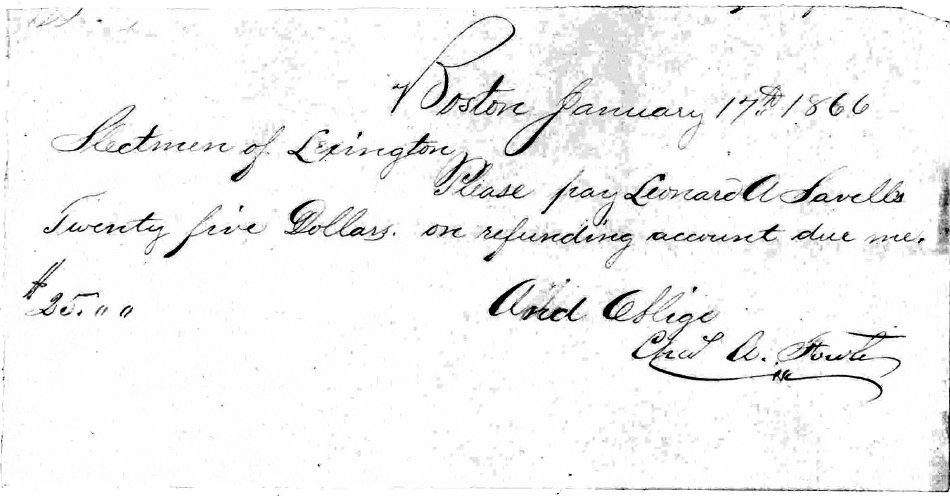 Boston January 17th 1866
Slectmen of Lexington
Please pay Leonard A Savells
Twenty five Dollars. on refunding account due me.
$25.00
And Oblige
Chas A. Fowle